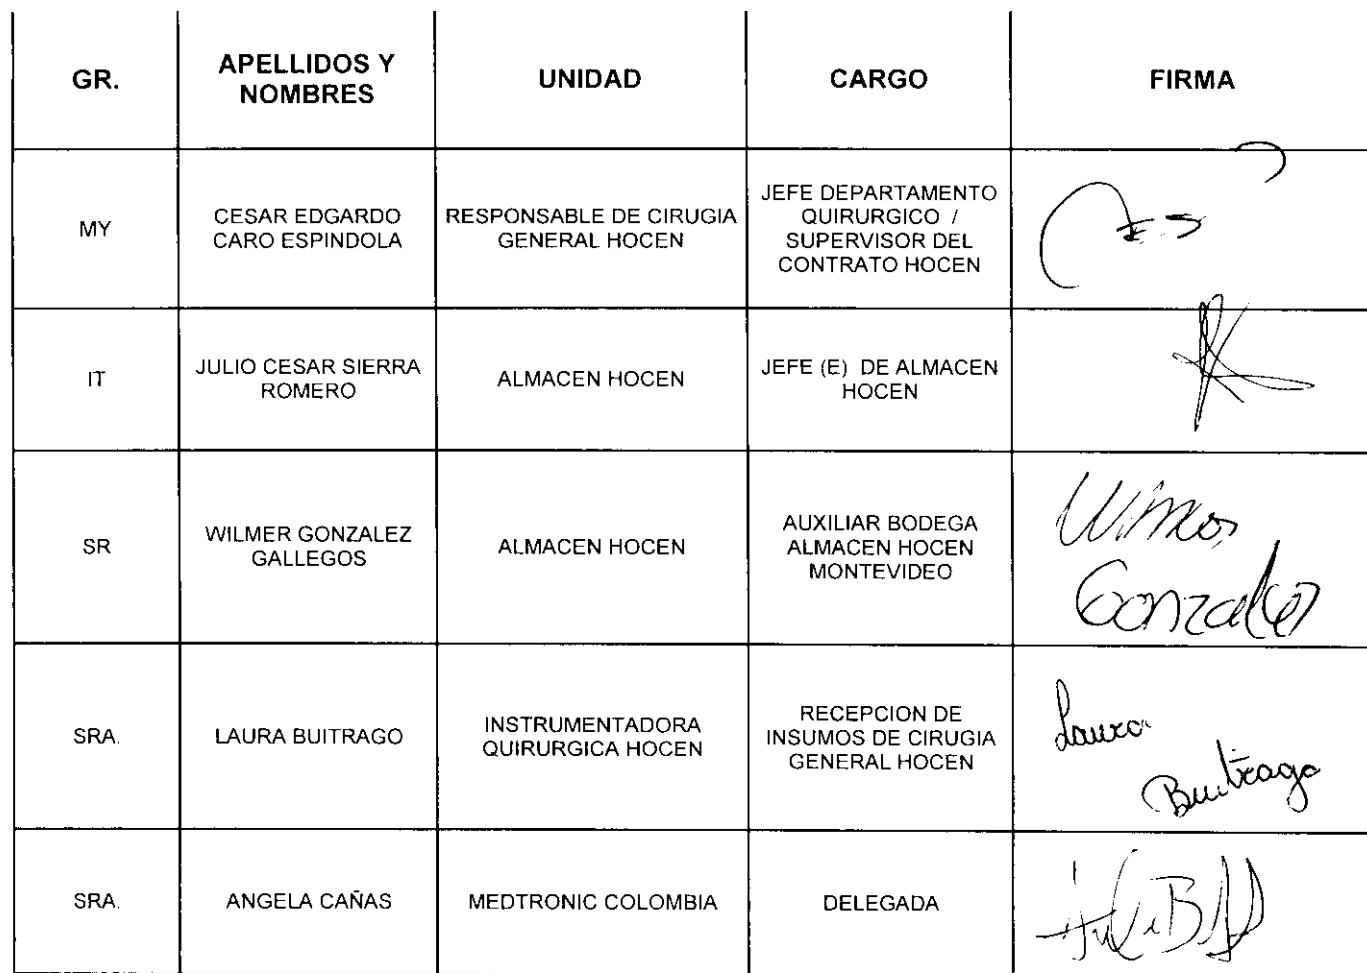 GR.
APELLIDOS Y
NOMBRES
UNIDAD
CARGO
FIRMA
MY
CESAR EDGARDO
CARO ESPINDOLA
RESPONSABLE DE CIRUGIA
GENERAL HOCEN
JEFE DEPARTAMENTO
QUIRURGICO /
SUPERVISOR DEL
CONTRATO HOCEN
IT
JULIO CESAR SIERRA
ROMERO
ALMACEN HOCEN
JEFE (E) DE ALMACEN
HOCEN
SR
WILMER GONZALEZ
GALLEGOS
ALMACEN HOCEN
AUXILIAR BODEGA
ALMACEN HOCEN
MONTEVIDEO
Gonzalez
SRA.
LAURA BUITRAGO
INSTRUMENTADORA
QUIRURGICA HOCEN
RECEPCION DE
INSUMOS DE CIRUGIA
GENERAL HOCEN
Laura
Buitrago
SRA.
ANGELA CAÑAS
MEDTRONIC COLOMBIA
DELEGADA